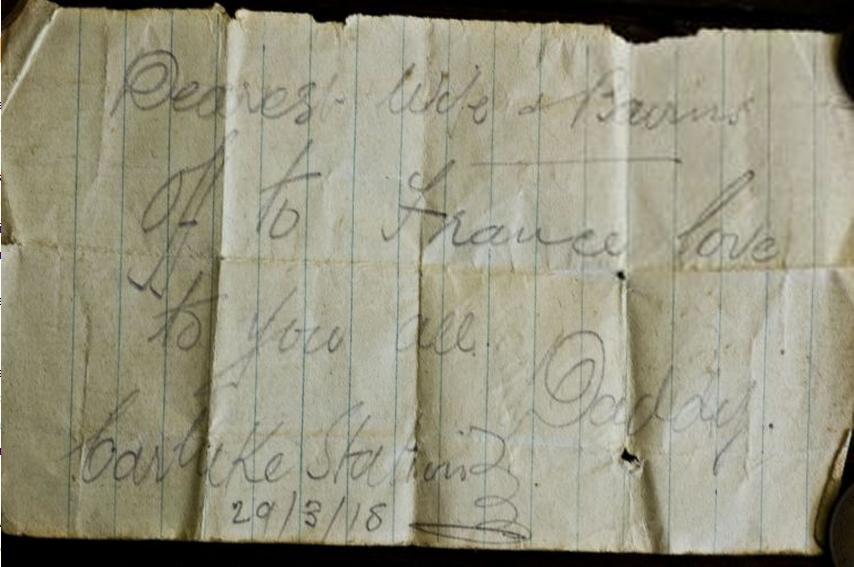 Dearest Wife & Bairns
Off to France love
to you all.
Daddy.
Carluke Station
29/3/18